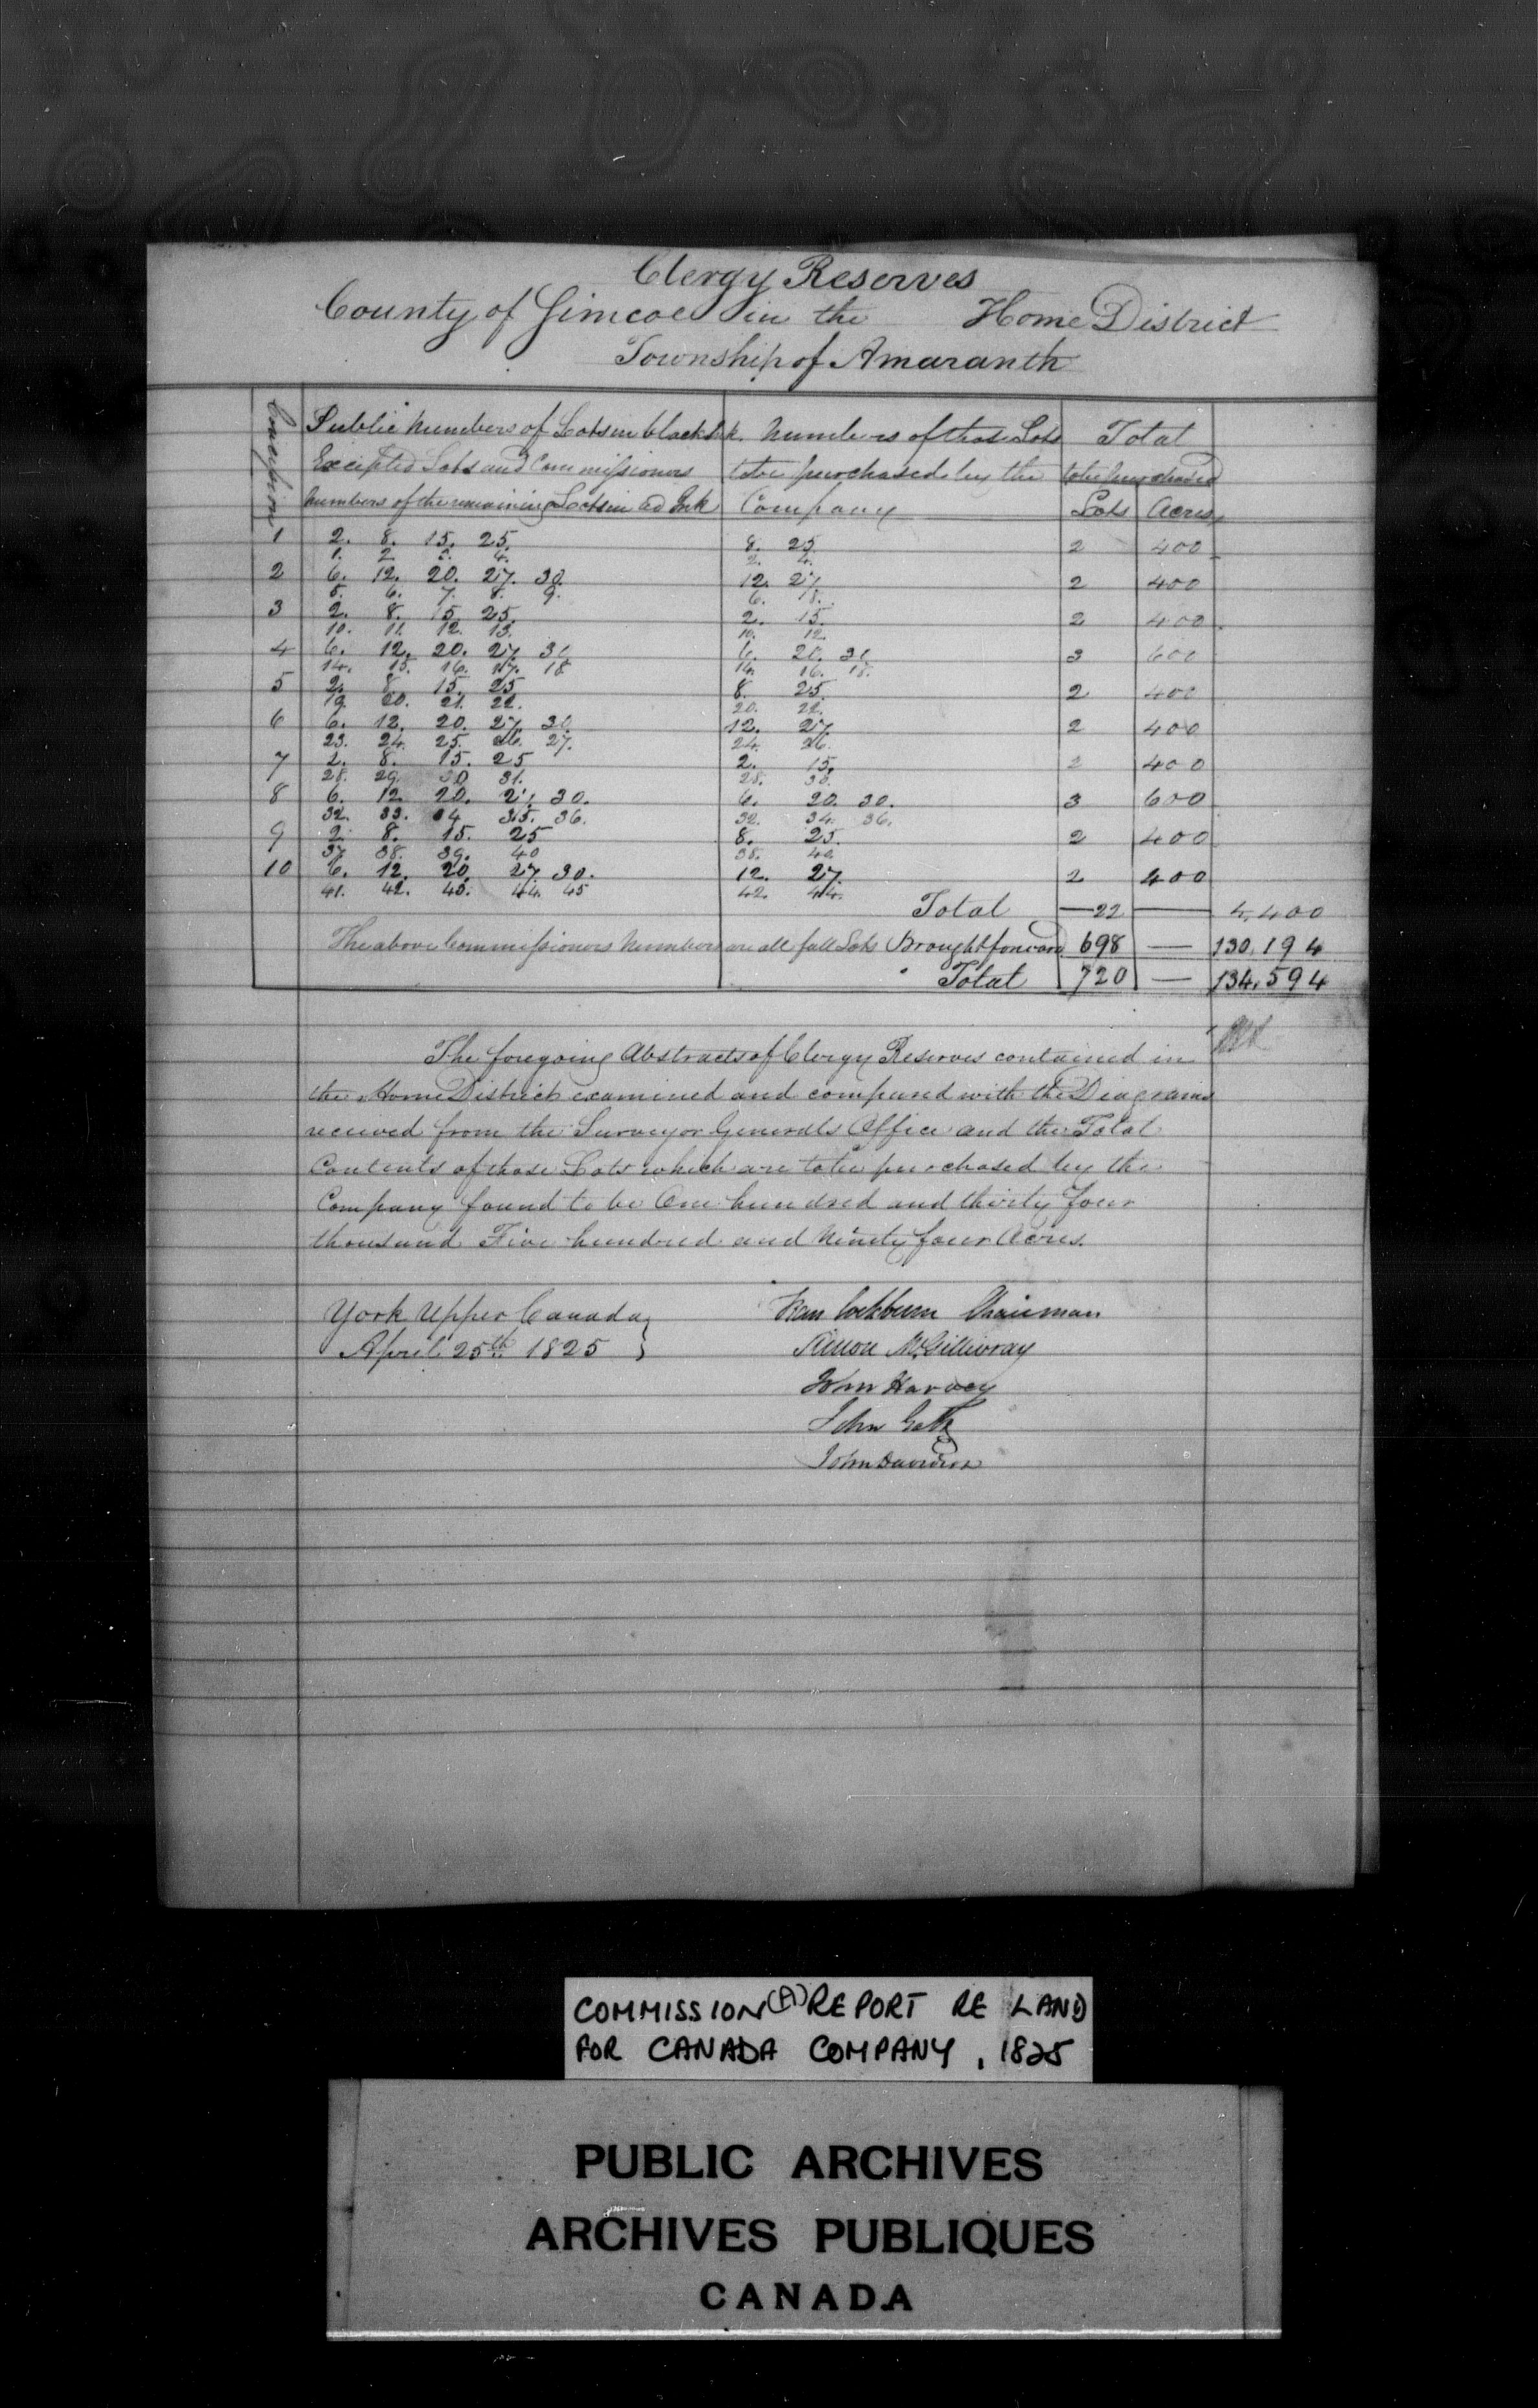 Clergy Reserves
County of Simcoe in the Home District
Township of Amaranth
Concession
Public Numbers of Lots in black Ink. Numbers of those Lots Total
Excepted Lots and Commissioners to be purchased by the to be purchased
Numbers of the remaining Lots in red Ink Company Lots Acres
1 2. 8. 15. 25. 8. 25. 2 400
1. 2. 3. 4. 2. 4.
2 6. 12. 20. 27. 30. 12. 27. 2 400
5. 6. 7. 8. 9. 6. 8.
3 2. 8. 15. 25. 2. 15. 2 400
10. 11. 12. 13. 10. 12.
4 6. 12. 20. 27. 30 6. 20. 30 3 600
14. 15. 16. 17. 18 14. 16. 18.
5 2. 8. 15. 25 8. 25. 2 400
19. 20. 21. 22. 20. 22.
6 6. 12. 20. 27. 30. 12. 27. 2 400
23. 24. 25. 26. 27. 24. 26.
7 2. 8. 15. 25 2. 15. 2 400
28. 29. 30. 31. 28. 30.
8 6. 12. 20. 27. 30. 6. 20. 30. 3 600
32. 33. 34 35. 36. 32. 34. 36.
9 2. 8. 15. 25 8. 25. 2 400
37. 38. 39. 40 38. 40.
10 6. 12. 20. 27. 30. 12. 27. 2 400
41. 42. 43. 44. 45 42. 44.
Total 22 4,400
The above Commissioners Numbers are all full Lots Brought forward 698 — 130,194
Total 720 — 134,594
The foregoing Abstracts of Clergy Reserves contained in
the Home District examined and compared with the Diagrams
received from the Surveyor Generals Office and the Total
Contents of those Lots which are to be purchased by the
Company found to be One hundred and thirty four
thousand Five hundred and Ninety four Acres.
York Upper Canada } Fran Cockburn Chairman
April 25th 1825 } Simon McGillivray
John Harvey
John Galt
John Davidson
COMMISSION (A) REPORT RE LAND
FOR CANADA COMPANY, 1825
PUBLIC ARCHIVES
ARCHIVES PUBLIQUES
CANADA